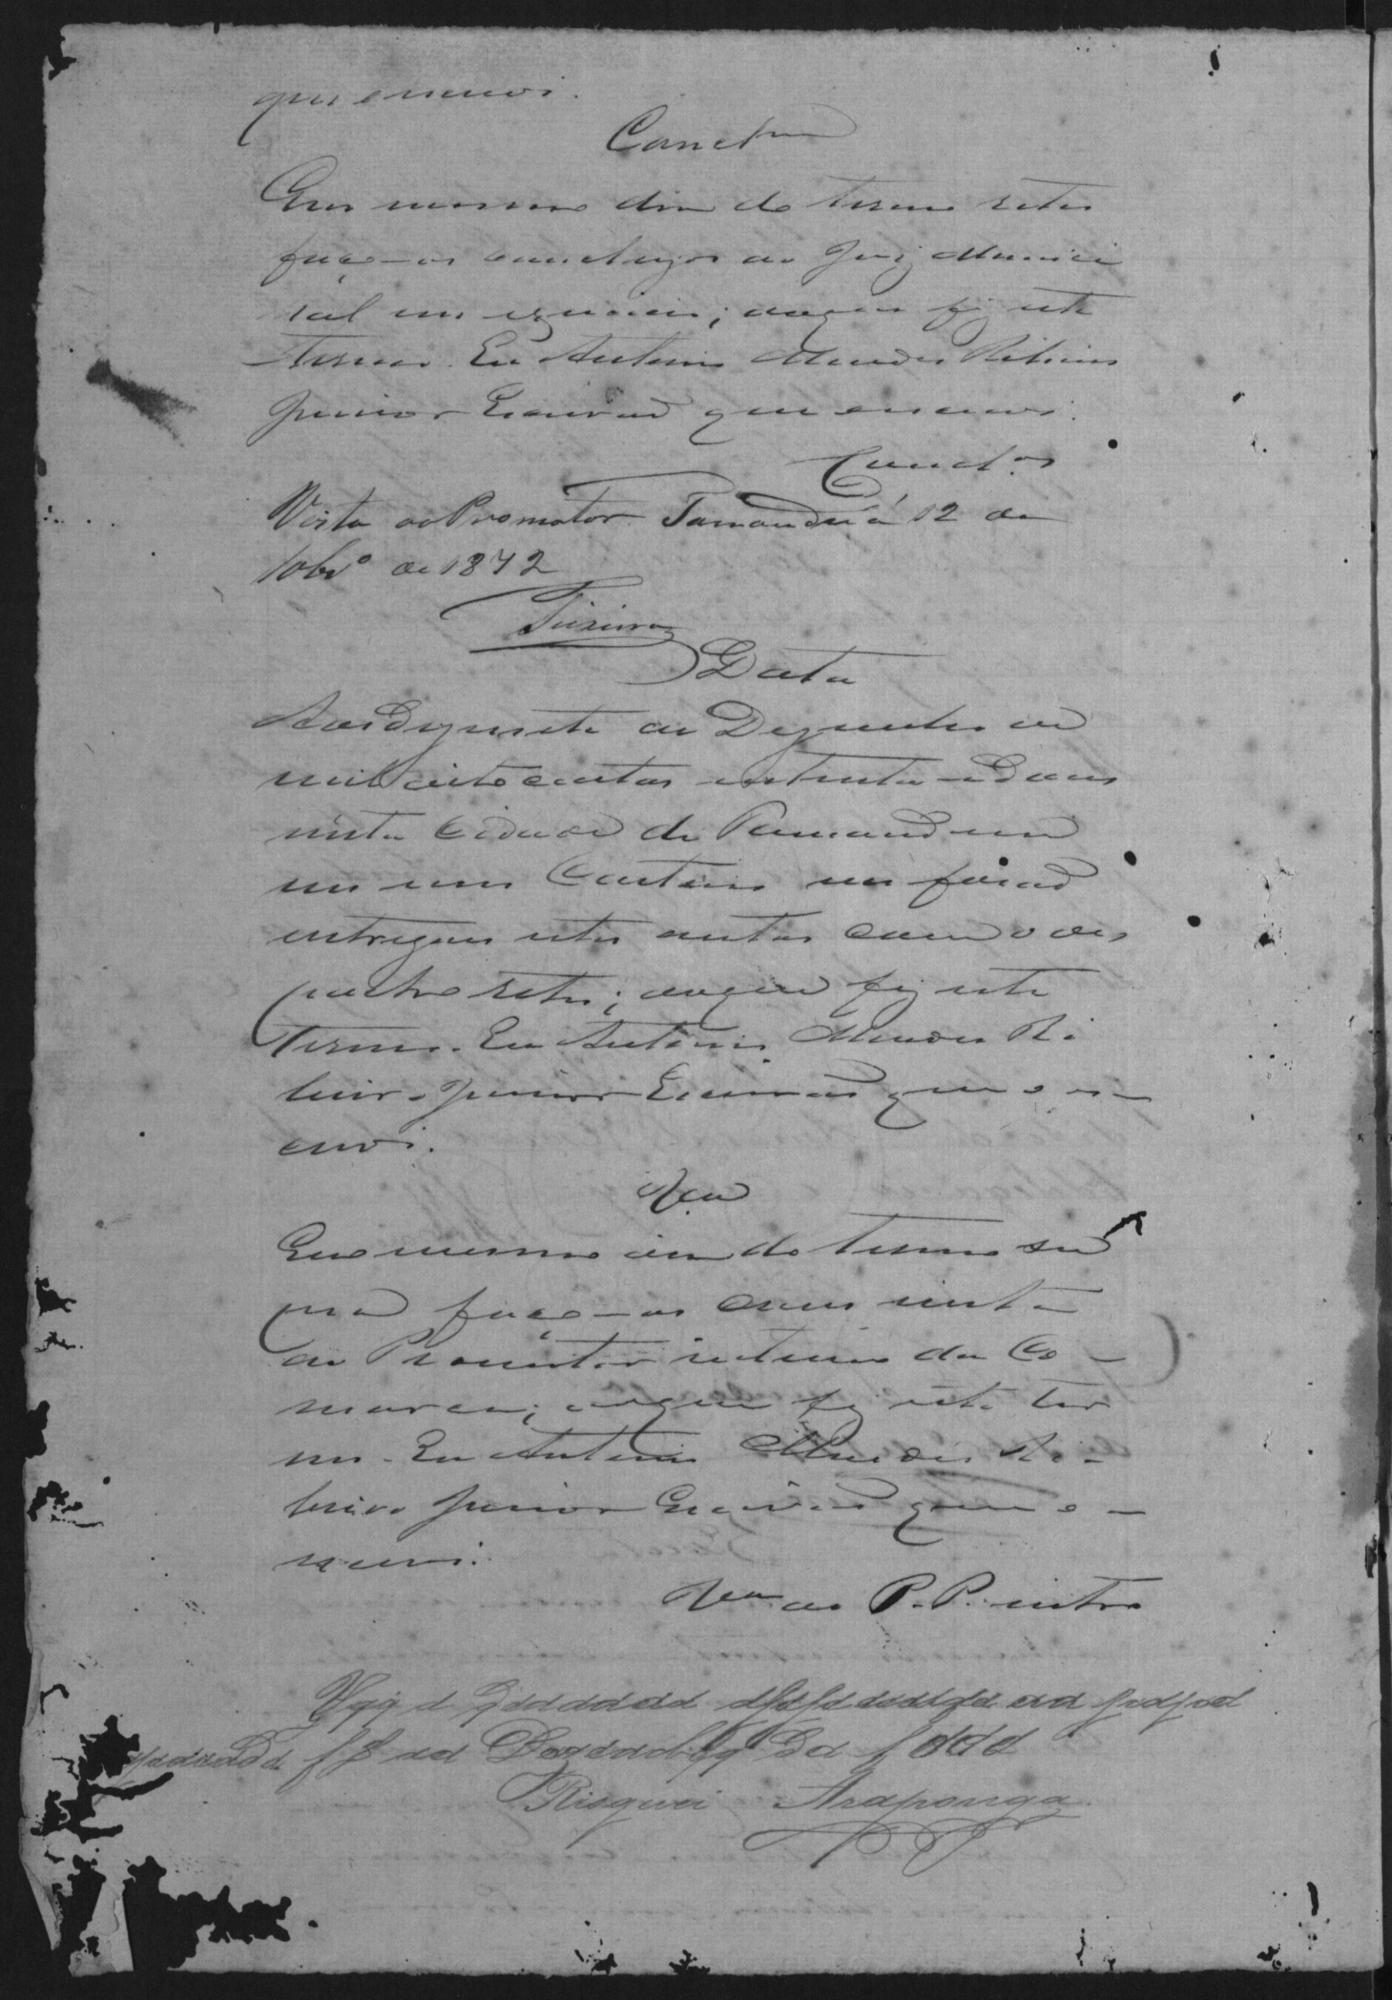 que escrevi.
Concl.m
Em mesmo dia do termo retro
faço-os conclusos ao Juiz Munici
pal em exercicio; do que fiz este
termo. Eu Antonio Mendes Ribeiro
Junior Escrivaõ que escrevi.
Concl.os
Vista ao Promotor Tamanduá 12 de
10br.o de 1872
Teixeira
Data
Aos de Dezembro de
mil oito centos setenta e dous
nesta Cidade de Tamandua
em meu Cartorio me foraõ
entregues estes autos com o des
pacho retro; do que fiz este
termo. Eu Antonio Mendes Ri
beiro Junior Escrivaõ que es-
crevi.
V.ta
Em mesmo dia do termo su
pra faço-os com vista
ao Promotor interino da Co-
marca; do que fiz este ter
mo. Eu Antonio Mendes Ri-
beiro Junior Escrivaõ que e-
screvi.
V.ta ao P. P. intr.o
Araponga